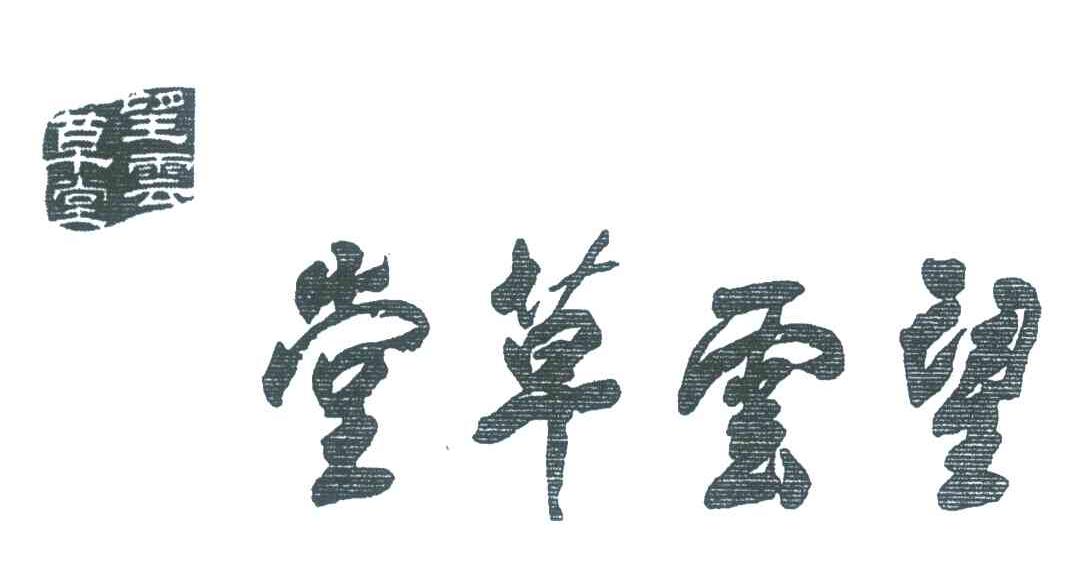 望雲草堂
望雲
草堂